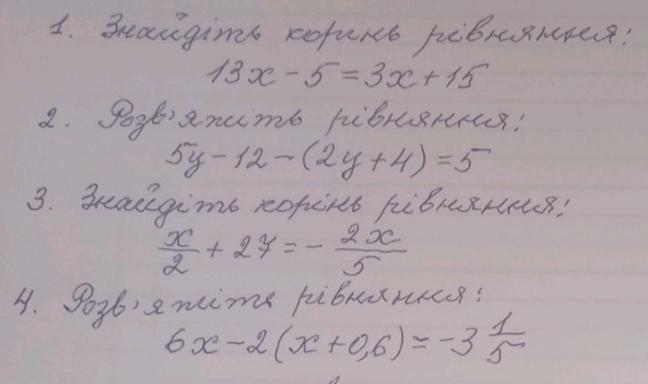 1. Знайдіть корінь рівняння:
13x - 5 = 3x + 15
2. Розв'яжіть рівняння:
5y - 12 - (2y + 4) = 5
3. Знайдіть корінь рівняння:
x/2 + 27 = - 2x/5
4. Розв'яжіть рівняння:
6x - 2(x + 0,6) = -3 1/5